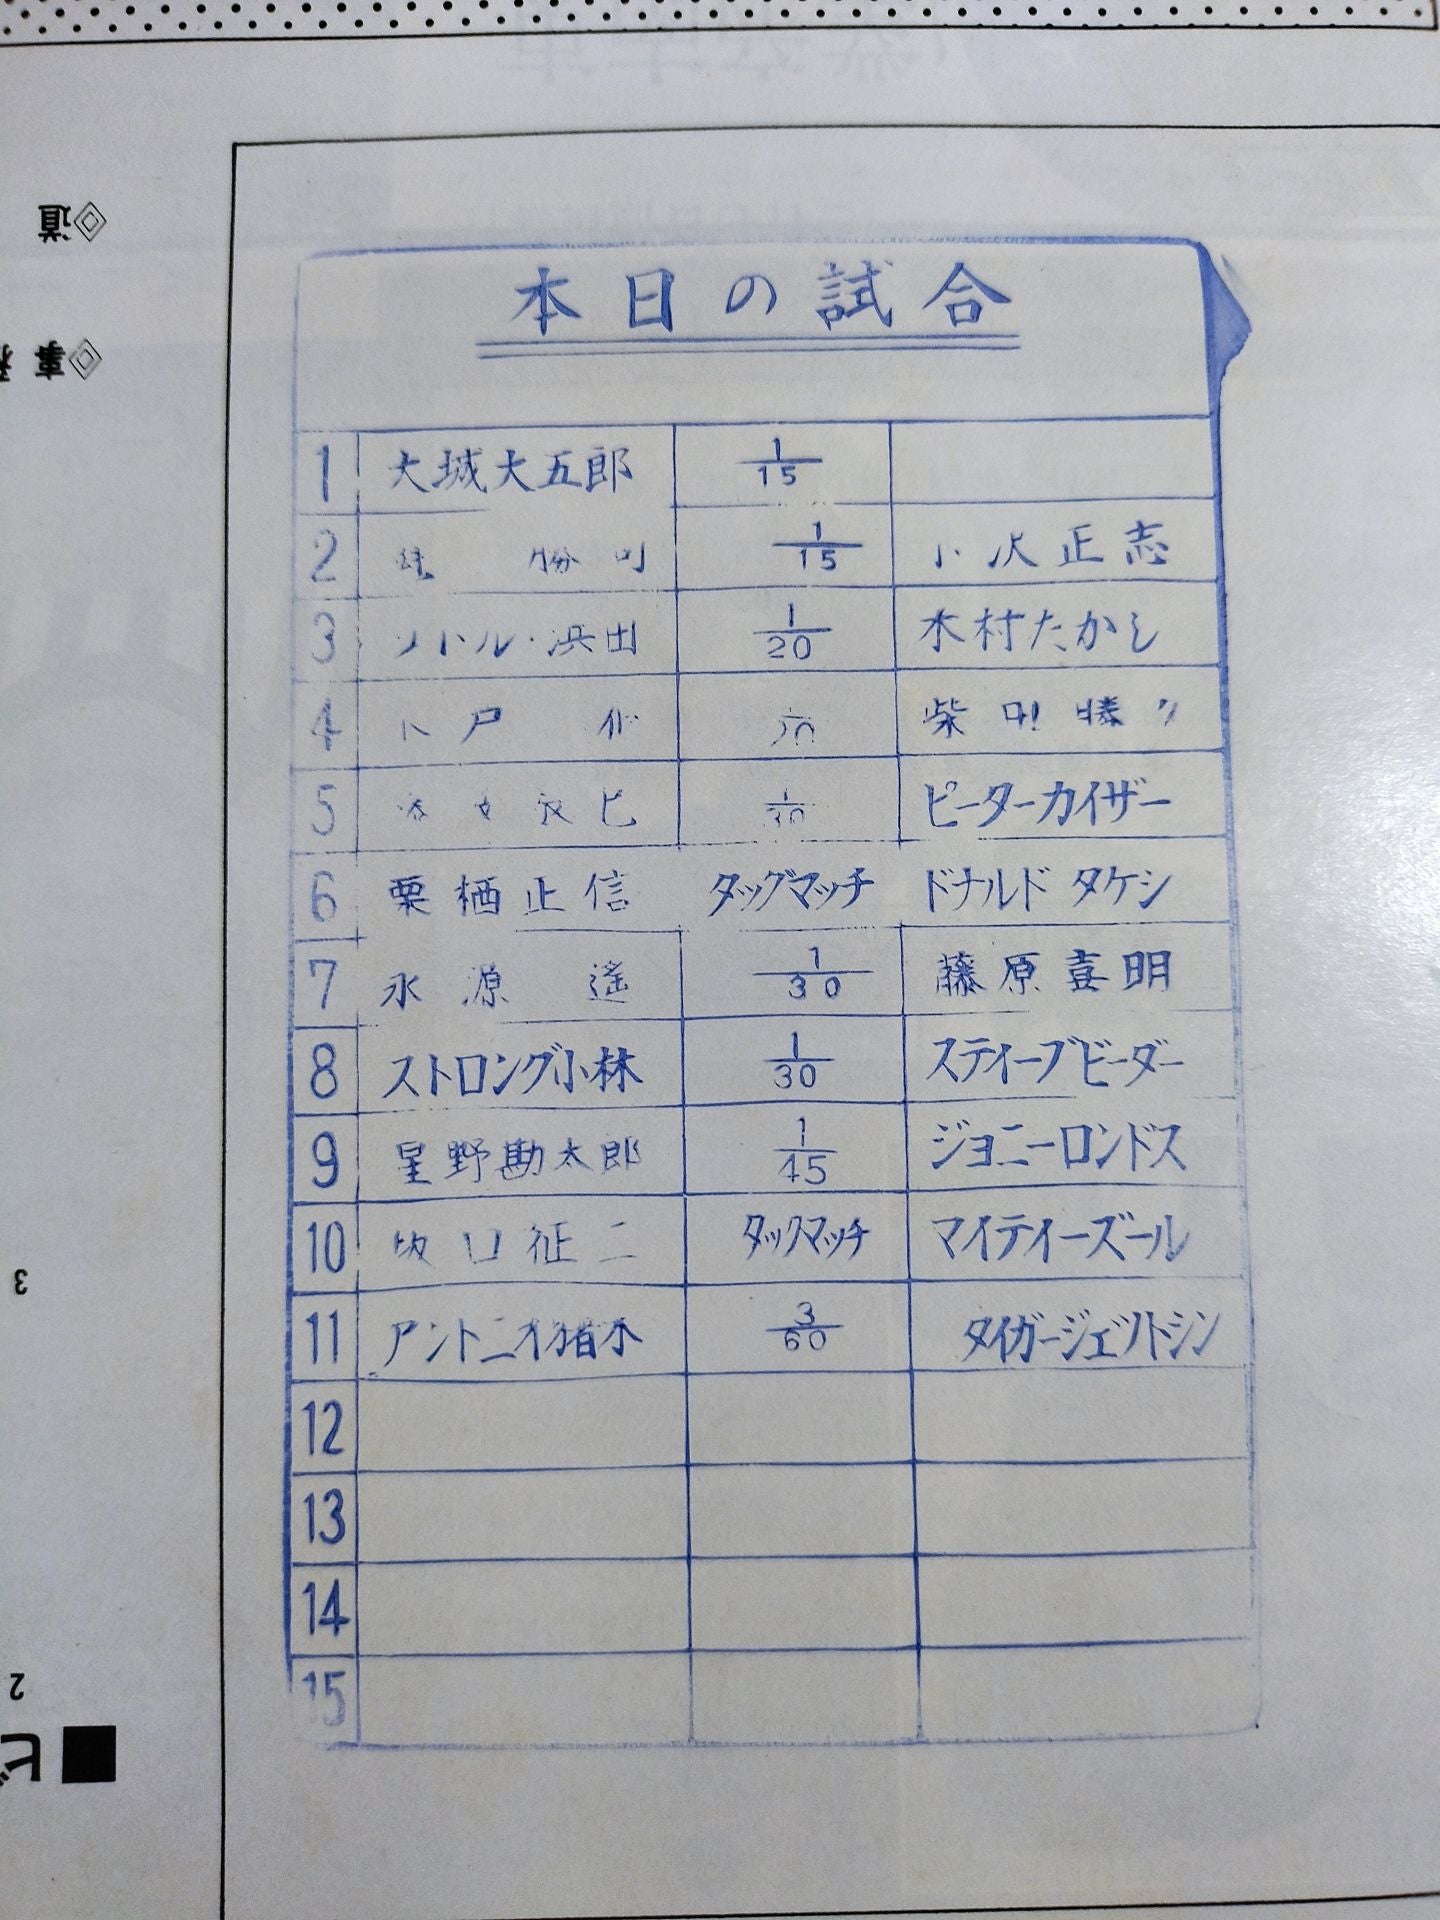 本日の試合
1 大城大五郎 1/15
2 勝 1/15 正志
3 リトル・浜田 1/20 木村たかし
4 戸 柴田勝
5 1/30 ピーターカイザー
6 栗栖正信 タッグマッチ ドナルド タケシ
7 永源遙 1/30 藤原喜明
8 ストロング小林 1/30 スティーブビーダー
9 星野勘太郎 1/45 ジョニーロンドス
10 坂口征二 タックマッチ マイティーズール
11 アントニオ猪木 3/60 タイガージェットシン
12
13
14
15
◇道
◇事
3
2
■ビ